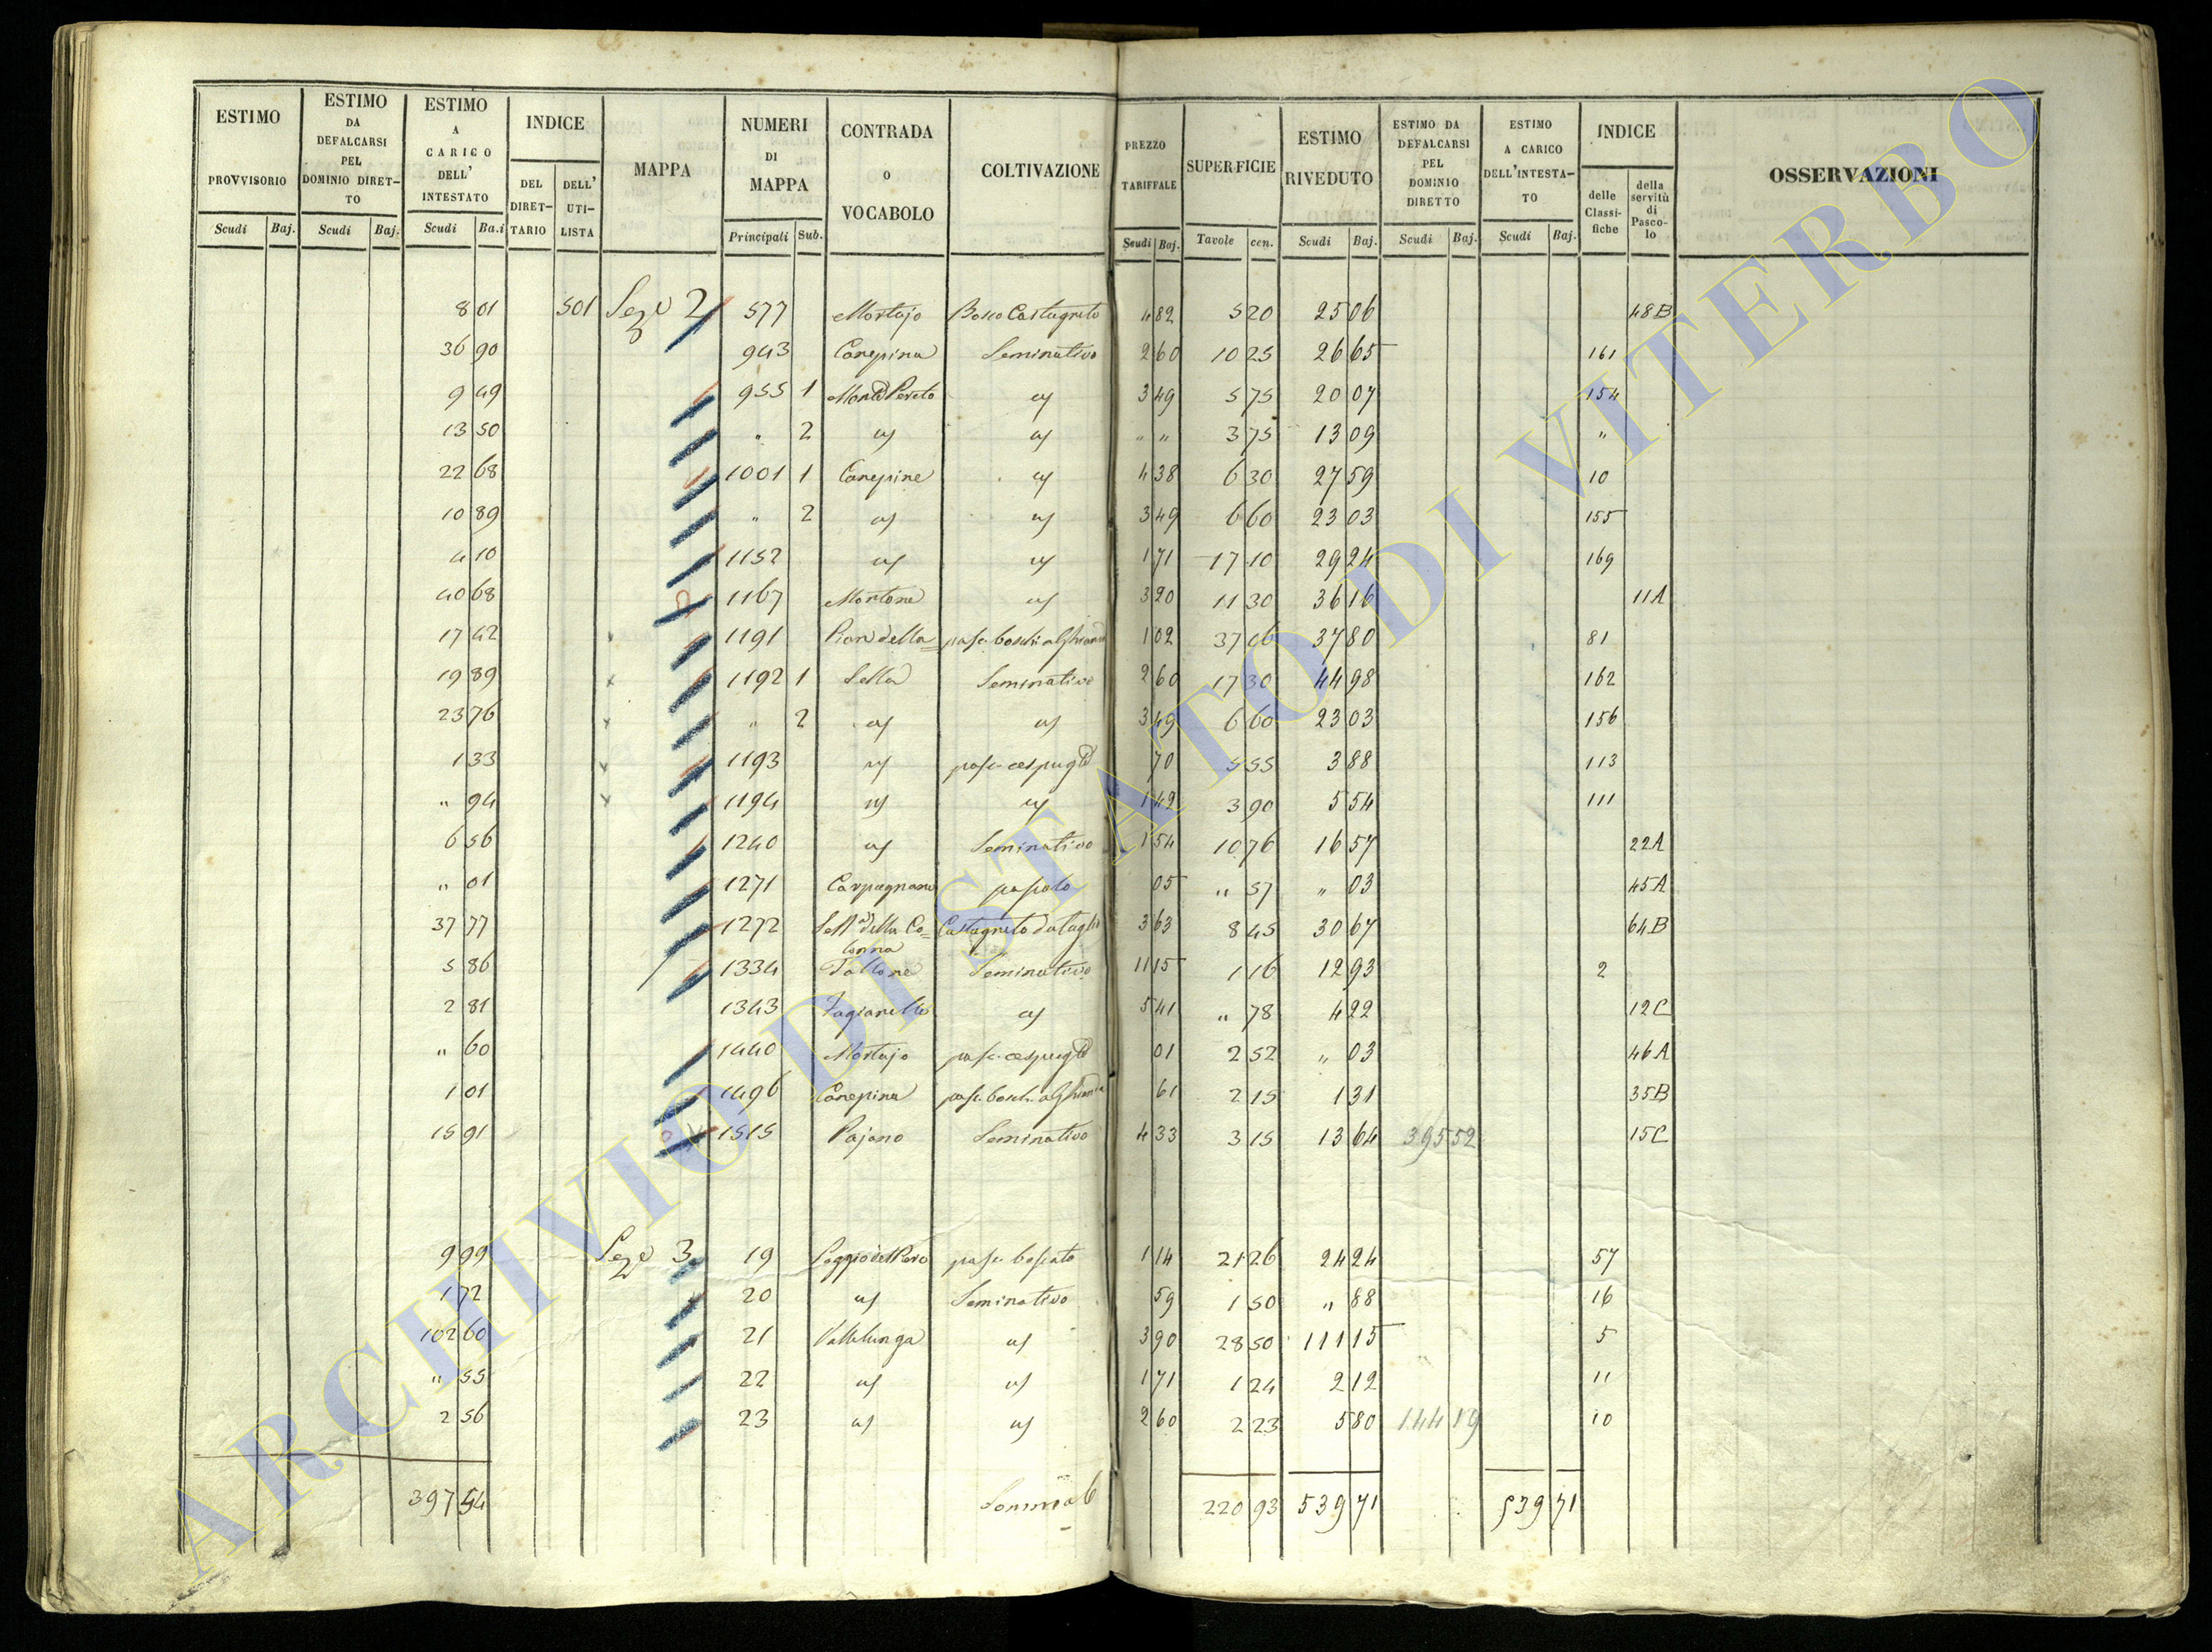 ESTIMO PROVVISORIO | ESTIMO DA DEFALCARSI PEL DOMINIO DIRET-TO | ESTIMO A CARICO DELL' INTESTATO | INDICE | MAPPA | NUMERI DI MAPPA | CONTRADA O VOCABOLO | COLTIVAZIONE | PREZZO TARIFFALE | SUPERFICIE | ESTIMO RIVEDUTO | ESTIMO DA DEFALCARSI PEL DOMINIO DIRETTO | ESTIMO A CARICO DELL'INTESTA-TO | INDICE | OSSERVAZIONI
DEL DIRET-TARIO | DELL' UTI-LISTA | delle Classi-fiche | della servitù di Pasco-lo
Scudi | Baj. | Scudi | Baj. | Scudi | Ba.i | Principali | Sub. | Scudi | Baj. | Tavole | cen. | Scudi | Baj. | Scudi | Baj. | Scudi | Baj.
8 01 | 501 | Sez.e 2 | 577 | Mortajo | Bosco Castagneto | 4 82 | 5 20 | 25 06 | 48B
36 90 | 943 | Canepina | Seminativo | 2 60 | 10 25 | 26 65 | 161
9 49 | 955 | 1 | 3 49 | 5 75 | 20 07 | 154
13 50 | " | 2 | " " | 3 75 | 13 09 | "
22 68 | 1001 | 1 | Canepine | 4 38 | 6 30 | 27 59 | 10
10 89 | " | 2 | 3 49 | 6 60 | 23 03 | 155
4 10 | 1152 | 1 71 | 17 10 | 29 24 | 169
40 68 | 1167 | Mortone | 3 20 | 11 30 | 36 16 | 11A
17 42 | 1191 | Pian della= | pasc. boschi a Ghianda | 1 02 | 37 06 | 37 80 | 81
19 89 | 1192 | 1 | Sella | Seminativo | 2 60 | 17 30 | 44 98 | 162
23 76 | " | 2 | 3 49 | 6 60 | 23 03 | 156
1 33 | 1193 | pasc. cespugto | 70 | 5 55 | 3 88 | 113
" 94 | 1194 | 1 42 | 3 90 | 5 54 | 111
6 56 | 1240 | Seminativo | 1 54 | 10 76 | 16 57 | 22A
" 01 | 1271 | Carpagnano | pascolo | 05 | " 57 | " 03 | 45A
37 77 | 1272 | della Co=lonna | Castagneto da taglio | 3 63 | 8 45 | 30 67 | 64B
5 86 | 1334 | Seminativo | 11 15 | 1 16 | 12 93 | 2
2 81 | 1343 | Fagianello | 5 41 | " 78 | 4 22 | 12C
" 60 | 1440 | Mortajo | pasc. cespugto | 01 | 2 52 | " 03 | 46A
1 01 | 1496 | Canepina | pasc. bosch. a Ghianda | 61 | 2 15 | 1 31 | 35B
15 91 | 1515 | Pajano | Seminativo | 4 33 | 3 15 | 13 64 | 395 52 | 15C
9 99 | Sez.e 3 | 19 | Poggio del Pero | pasc. boscato | 1 14 | 21 26 | 24 24 | 57
1 72 | 20 | Seminativo | 59 | 1 50 | " 88 | 16
102 60 | 21 | Vallelunga | 3 90 | 28 50 | 111 15 | 5
" 55 | 22 | 1 71 | 1 24 | 2 12 | 11
2 56 | 23 | 2 60 | 2 23 | 5 80 | 144 19 | 10
397 54 | 220 93 | 539 71 | 539 71
ARCHIVIO DI STATO DI VITERBO